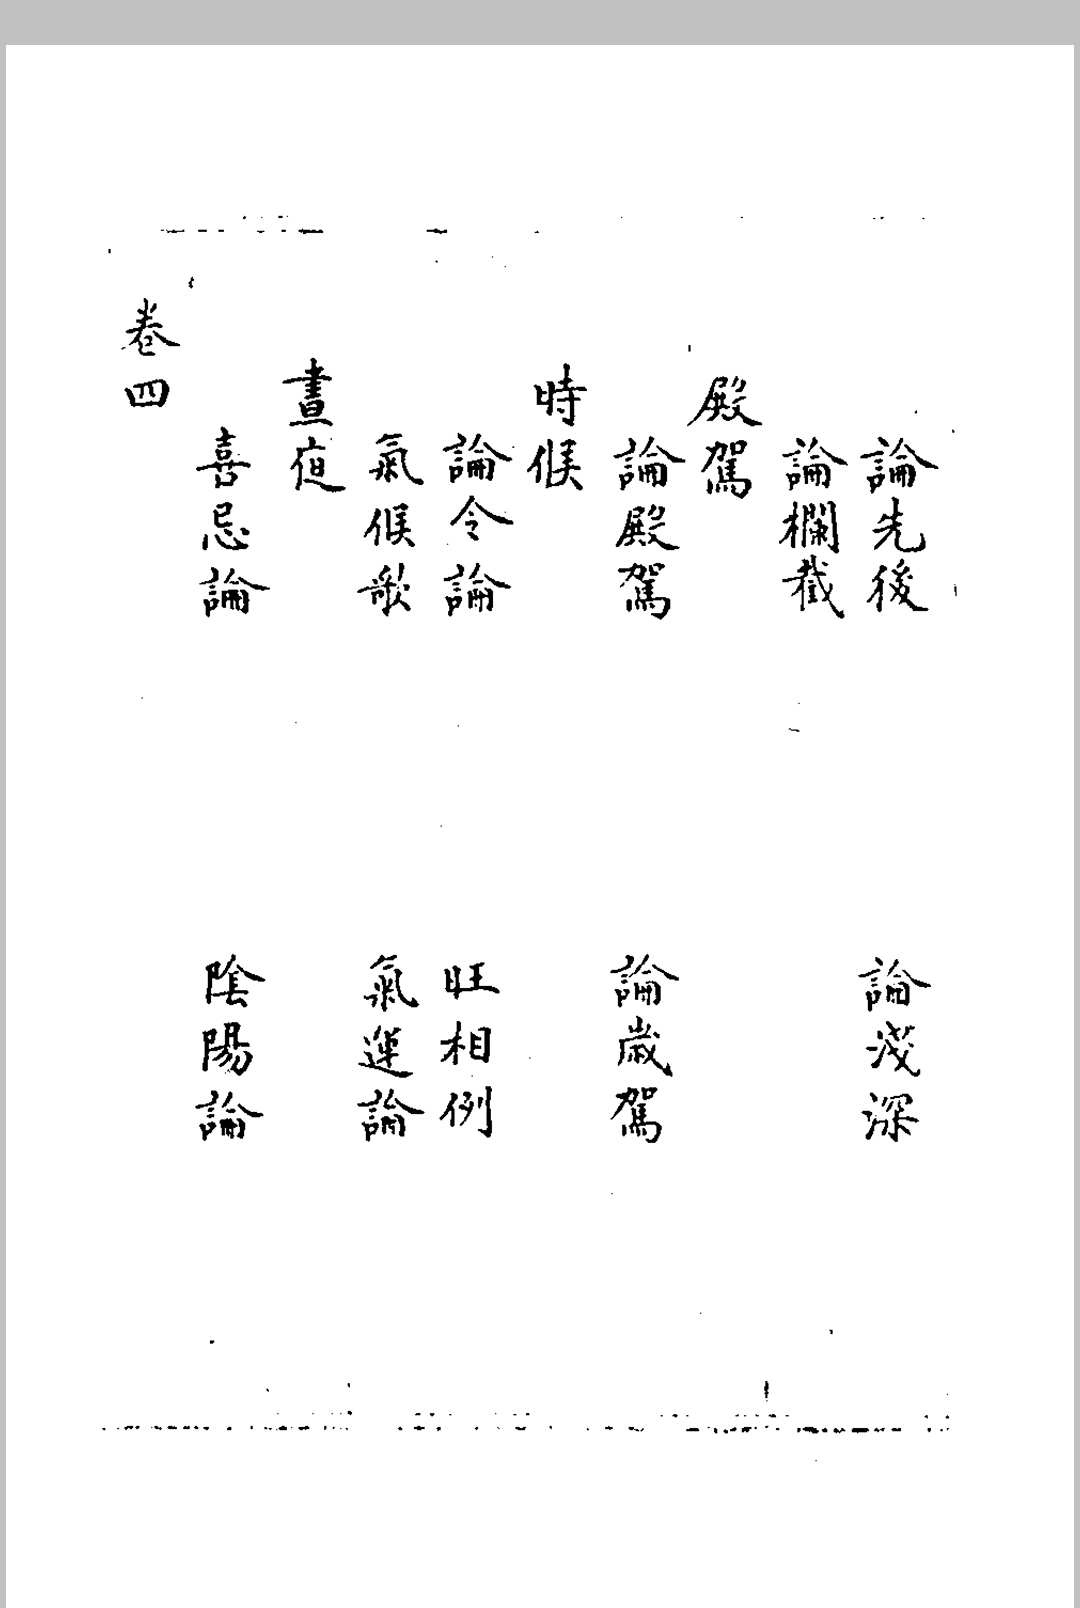 論先後　論淺深
論欄截
殿駕
論殿駕　論歲駕
時候
論令論　旺相例
氣候歌　氣運論
晝夜
喜忌論　陰陽論
卷四